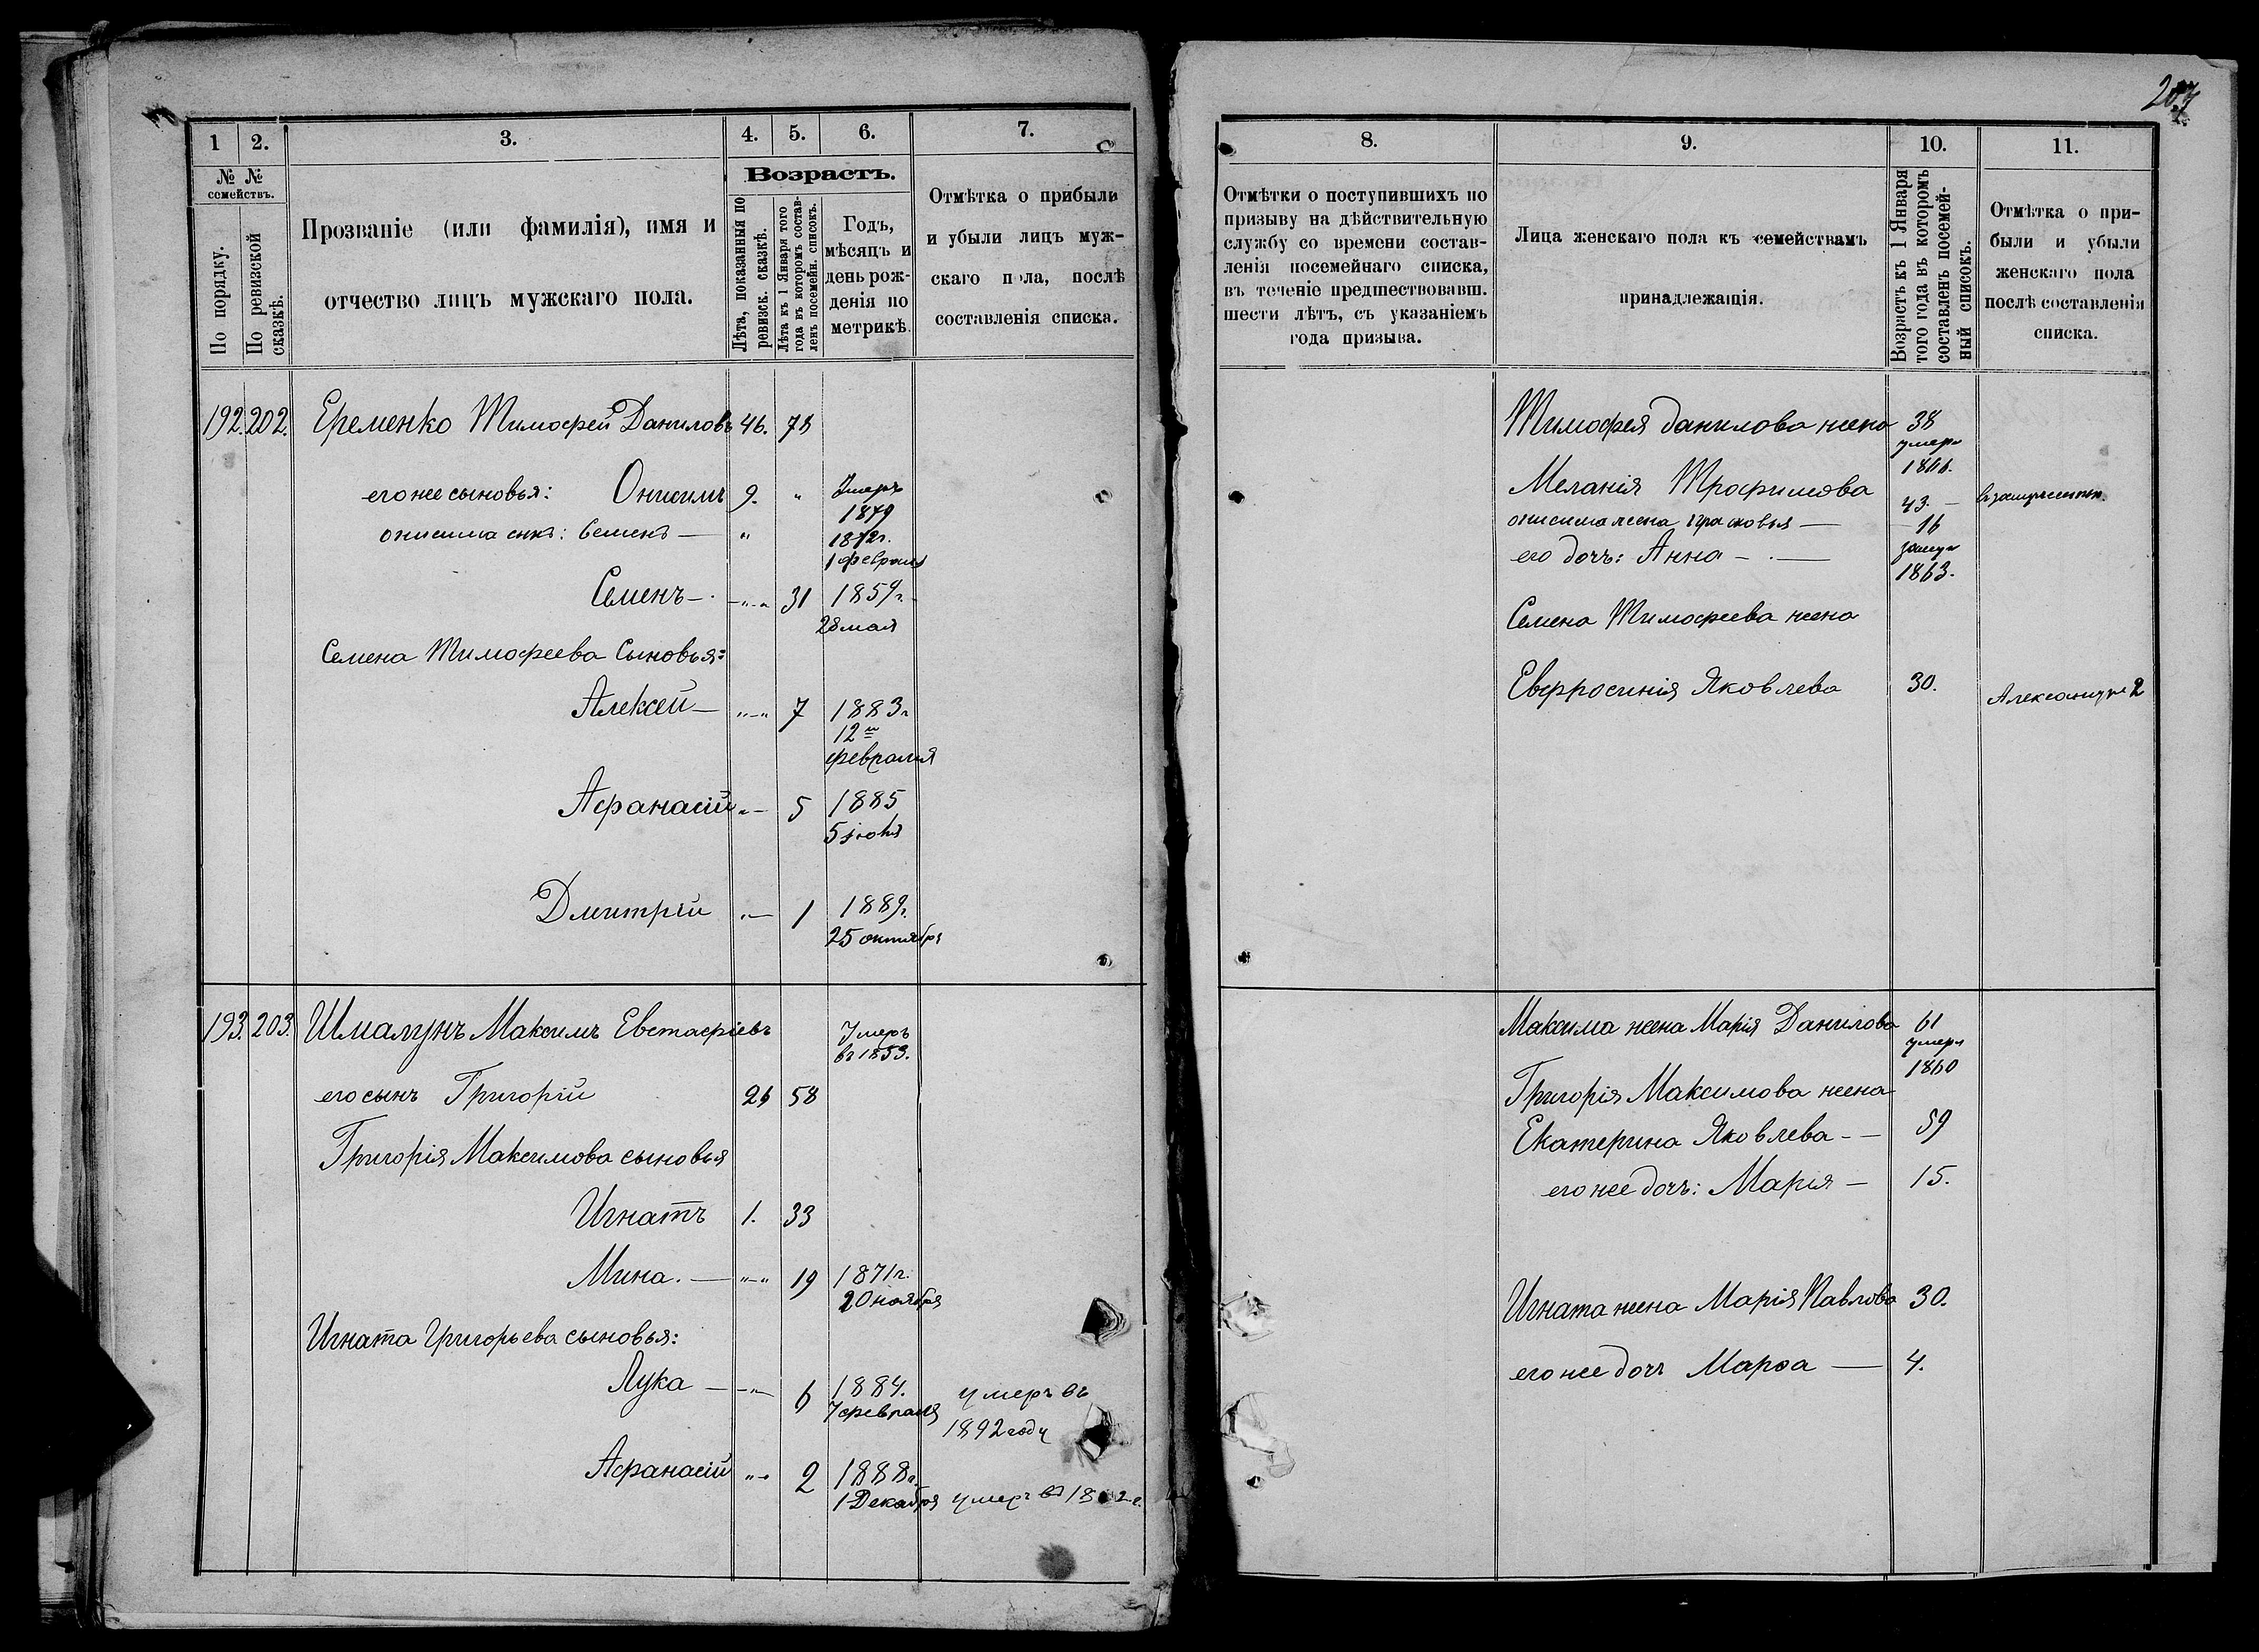 207
1 2. 3. 4. 5. 6. 7.
№ № семействъ.
По порядку.
По ревизской сказкѣ.
Прозваніе (или фамилія), имя и
отчество лицъ мужскаго пола.
Возрастъ.
Лѣта, показанныя по ревизск. сказкѣ.
Лѣта къ 1 Января того года въ которомъ составленъ посемейн. списокъ.
Годъ,
мѣсяцъ и
день рож-
денія по
метрикѣ.
Отмѣтка о прибыли
и убыли лицъ муж-
скаго пола, послѣ
составленія списка.
192. 202. Еременко Тимофей Даниловъ 46. 78
его же сыновья: Онисимъ 9. " Умеръ
1879
онисима снъ: Семенъ — " 1872г.
1 февраля
Семенъ — 31 1859г.
28 мая
Семена Тимофеева Сыновья:
Алексей — "—" 7 1883г
12го
февраля
Афанасій "— 5 1885
5 іюня
Дмитрій "— 1 1889г.
25 октября
193. 203. Шмалунъ Максимъ Евстафіевъ Умеръ
въ 1853.
его сынъ Григорій 26 58
Григорія Максимова сыновья
Игнатъ 1. 33
Мина. — "—" 19 1871г.
20 ноября
Игната Григорьева сыновья:
Лука — "— 6 1884. умеръ въ
7 февраля 1892 году
Афанасій "—" 2 1888г.
1 Декабря умеръ въ
8. 9. 10. 11.
Отмѣтки о поступившихъ по
призыву на дѣйствительную
службу со времени состав-
ленія посемейнаго списка,
въ теченіе предшествовавш.
шести лѣтъ, съ указаніемъ
года призыва.
Лица женскаго пола къ семействамъ
принадлежащія.
Возрастъ къ 1 Января
того года въ которомъ
составленъ посемей-
ный списокъ.
Отмѣтка о при-
были и убыли
женскаго пола
послѣ составленія
списка.
Тимофея Данилова жена 38
умерл
1866.
Меланія Трофимова 43. —
онисима жена Прасковья — 16
его дочь: Анна — замуж
1863.
Семена Тимофеева жена
Евфросинія Яковлева 30. Александра 2
Максима жена Марія Данилова 61
умерл
1860
Григорія Максимова жена
Екатерина Яковлева — 59
его же дочь: Марія — 15.
Игната жена Марія Павлова 30.
его же дочь Марѳа — 4.